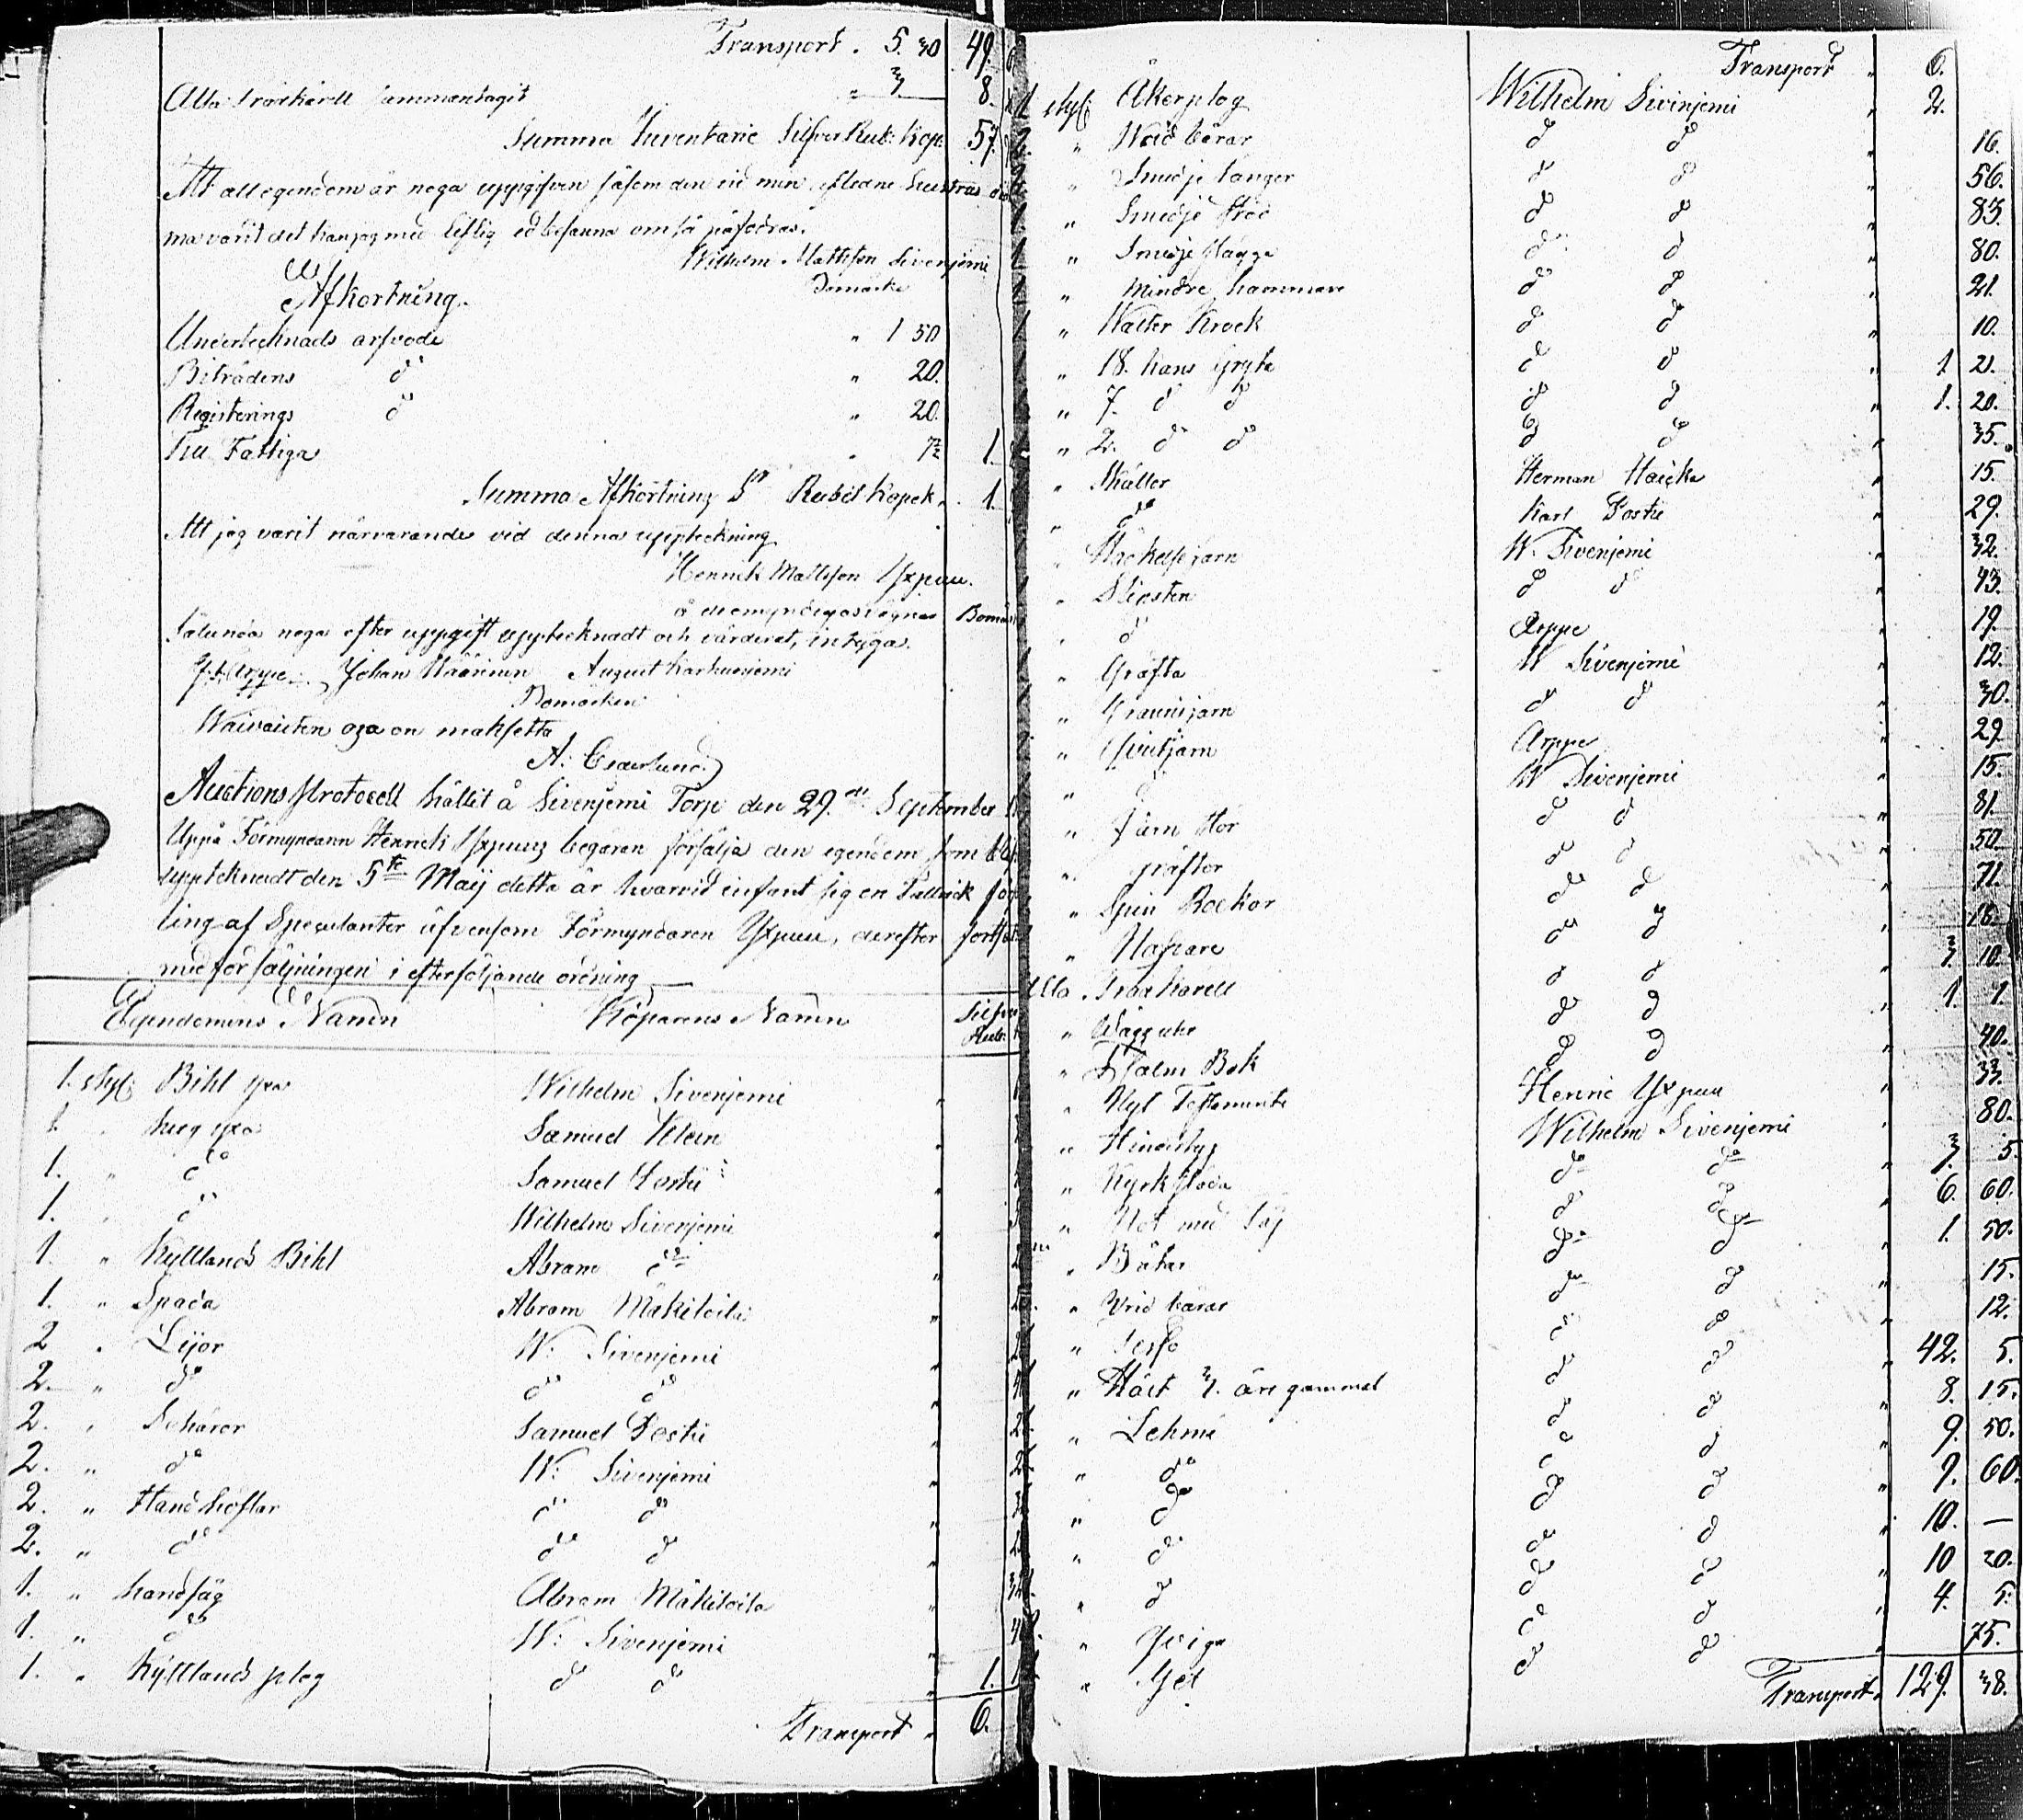 Transport . 5. 30 49.
Alla Träkärell sammantagit " 3. 8.
Summa Inventarie Silfver Rub: Kop: 57.
Att all egendom är noga uppgifven såsom den vid min afledne hustrus död
ma varit det kan jag med liflig ed besanna om så påfodras.
Wilhelm Mattsson Sivenjemi
Bomärke
Afkortning.
Undertecknads arfvode " 1 50
Biträdens do " 20.
Registerings do " 20.
Till Fattiga " 7½ 1.
Summa Afkortning Sr Rubel Kopek " 1.
Att jag varit närvarande vid denna uppteckning
Henrick Mattsson Yxpuu.
å de omyndigas vägnar Bomär
Sålunda noga efter uppgift upptecknadt och värderat, intyga.
Arppe Johan Häärinen August Karhunjemi
Bomärken
Waivaisten osa on maksettu
A: Cederlund
Auctions Protocoll hållit å Sivenjemi Torp den 29de September
Uppå Förmyndarn Henrick Yxpuus begäran försälja den egendom som blef
upptecknadt den 5te Maij detta år hvarvid infant sig en Tallrick för
ling af Speculanter äfvensom Förmyndaren Yxpuu, derefter fortsat
med försäljningen i efterföljande ordning
Egendomens Namn Köparens Namn Silfver
Rub.
1. styk: Bihl yxa Wilhelm Sivenjemi "
1. " hugg yxa Samuel Klem "
1. " do Samuel Postii "
1. " do Wilhelm Sivenjemi "
1. " Kyttlands Bihl Abram do "
1. " Spada Abram Mäkitoila "
2 " Lijor W: Sivenjemi "
2. " do do do "
2. " Schäror Samuel Postii "
2. " do W: Sivenjemi "
2. " Hand höflar do do "
2. " do do do "
1. " handsåg Abram Mäkitoila "
1. " do W: Sivenjemi "
1. " Kyttlands plog do do " 1.
Transport " 6.
Transport " 6.
1 styk: Åkerplog Wilhelm Sivinjemi " 2.
" Wrid bårar do do " 16.
" Smidje tänger do do " 56.
" Smidje städ do do " 83
1 " Smidje slägga do do " 80.
1 " Mindre hammare do do " 21.
1 " Watten Krock do do " 10.
" 18. kans gryta do do " 1 21.
" 7. do do do do " 1. 20.
" 2. do do do do " 35.
" Skållor Herman Haicka " 15.
" do Karl Postii " 29.
" Hackelsejarn W. Sivenjemi " 32.
" Slipsten do do " 43.
" do Arppe " 19.
" Gräfta W Sivenjemi " 12.
" do do " 30.
" Arppe " 29.
" do W Sivenjemi " 15.
" Järn stör do do " 81.
" gräftor do do " 50.
" Spin Rockar do do " 71.
" Nafvare do do " 18.
Alla Träkärell do do " 3. 10.
" Wägg uhr do do " 1. 1.
" Psalm Bok do do " 40.
" Nyt Testamente Henric Yxpuu " 33.
" Wilhelm Sivenjemi " 80.
" Kyrk släda do do " 3. 5.
" Not med Töj do do " 6. 60.
" Båtar do do " 1. 50.
" Vrid bårar do do " 15.
" do do " 12.
" Häst 3. års gammal do do " 42. 5.
" Lehmä do do " 8. 15.
" do do do " 9. 50.
" do do do " 9. 60.
" do do do " 10. —
" do do do " 10 20.
" Qviga do do " 4. 5.
" Get do do " 75.
Transport " 129. 38.